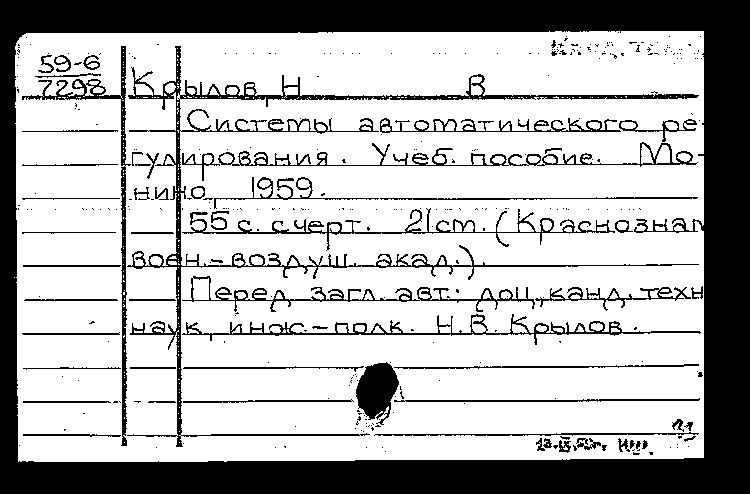 59-6
7298
Крылов, Н В
Системы автоматического ре-
гулирования. Учеб. пособие. Мо-
нино, 1959.
55 с. с черт. 21 см. (Краснознам
воен.-воздуш. акад.).
Перед загл. авт.: доц., канд. техн
наук, инж.-полк. Н.В. Крылов.
21